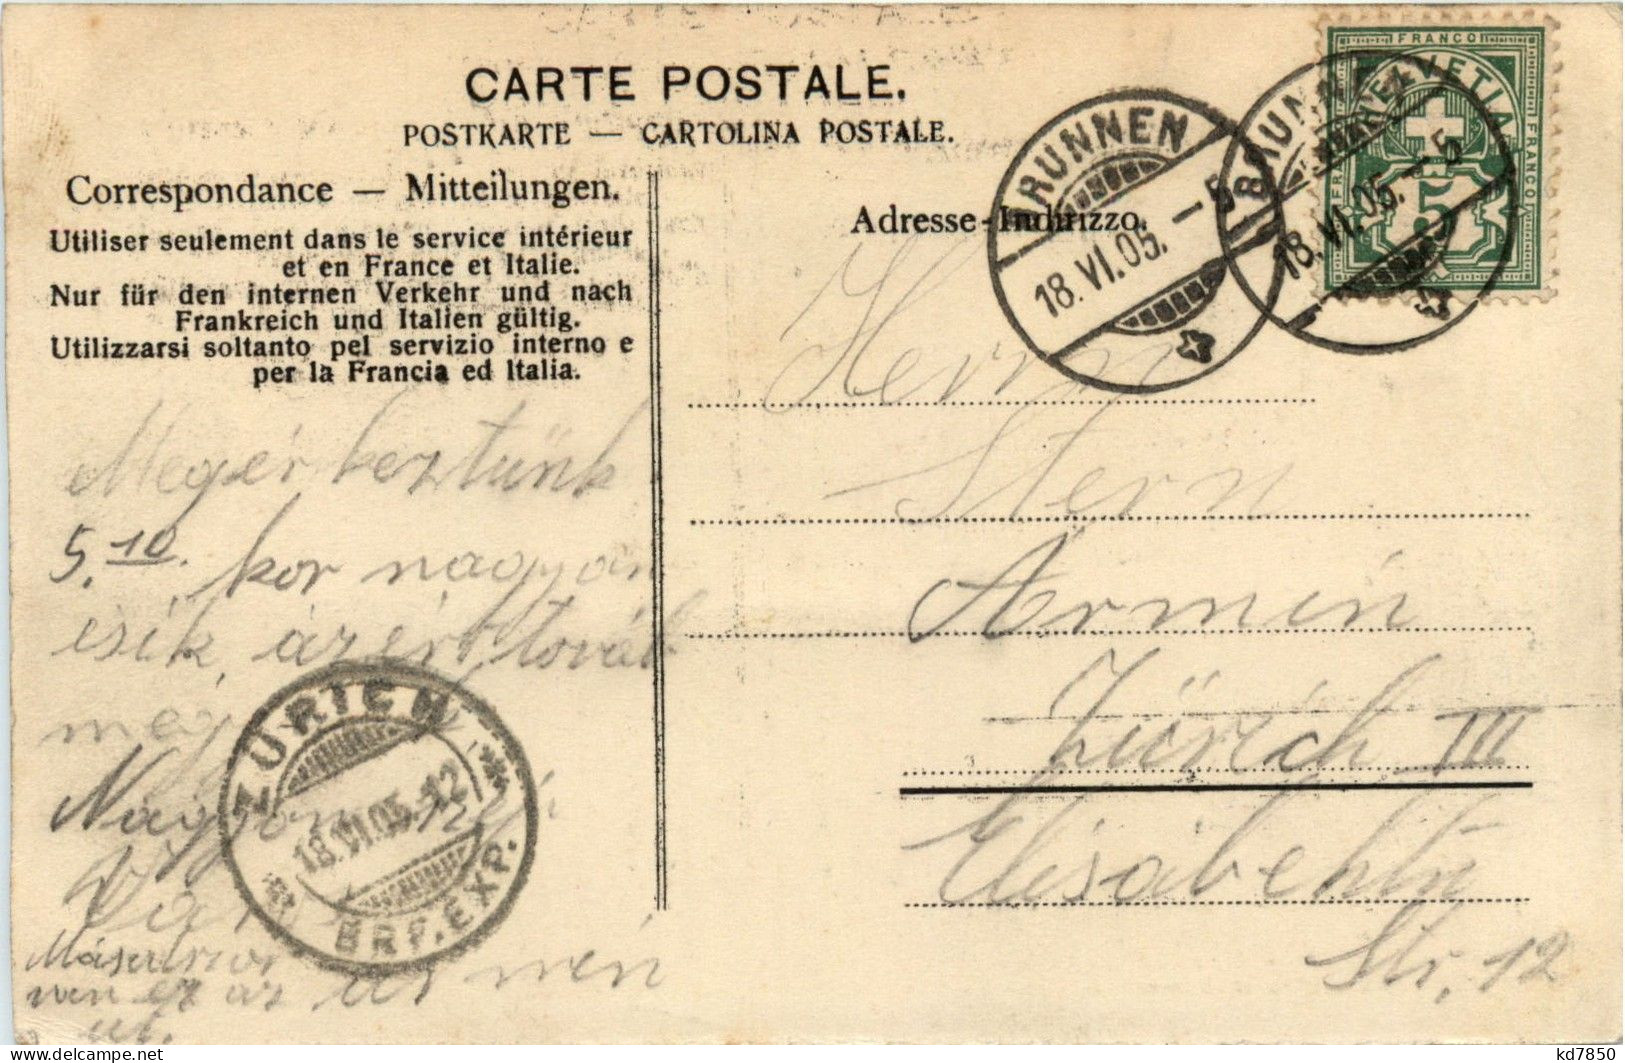 CARTE POSTALE.
POSTKARTE — CARTOLINA POSTALE.
Correspondance — Mitteilungen.
Utiliser seulement dans le service intérieur
et en France et Italie.
Nur für den internen Verkehr und nach
Frankreich und Italien gültig.
Utilizzarsi soltanto pel servizio interno e
per la Francia ed Italia.
Adresse-Indirizzo.
FRANCO
HELVETIA
FRANCO
FRANCO
5
BRUNNEN
18.VI.05.–5
BRUNNEN
18.VI.05.–5
Megérkeztünk
5.10. kor nagyon
esik, azért tovább
Nagyon
ZÜRICH
18.VI.05.–12
BRF.EXP.
Herrn
Stern
Ármin
Zürich III
Elisabeth
Str. 12
www.delcampe.net
kd7850